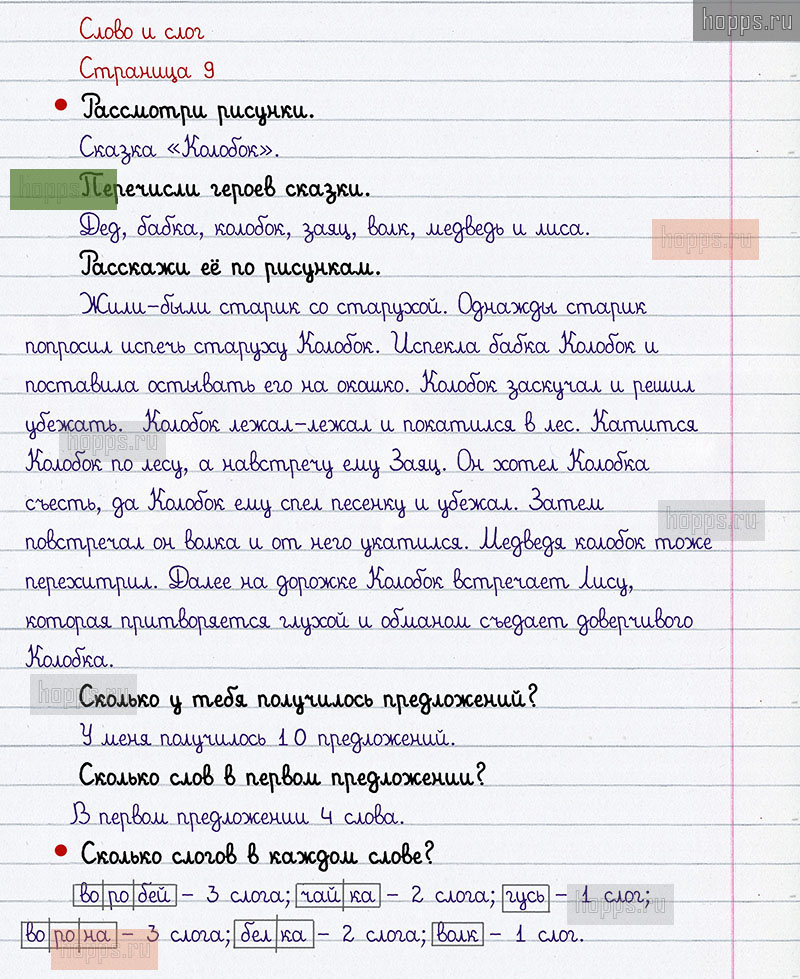 hopps.ru
Слово и слог
Страница 9
Рассмотри рисунки.
Сказка «Колобок».
Перечисли героев сказки.
Дед, бабка, колобок, заяц, волк, медведь и лиса.
Расскажи её по рисункам.
Жили-были старик со старухой. Однажды старик
попросил испечь старуху Колобок. Испекла бабка Колобок и
поставила остывать его на окошко. Колобок заскучал и решил
убежать. Колобок лежал-лежал и покатился в лес. Катится
Колобок по лесу, а навстречу ему Заяц. Он хотел Колобка
съесть, да Колобок ему спел песенку и убежал. Затем
повстречал он волка и от него укатился. Медведя колобок тоже
перехитрил. Далее на дорожке Колобок встречает Лису,
которая притворяется глухой и обманом съедает доверчивого
Колобка.
Сколько у тебя получилось предложений?
У меня получилось 10 предложений.
Сколько слов в первом предложении?
В первом предложении 4 слова.
Сколько слогов в каждом слове?
во|ро|бей – 3 слога; чай|ка – 2 слога; гусь – 1 слог;
во|ро|на – 3 слога; бел|ка – 2 слога; волк – 1 слог.
hopps.ru
hopps.ru
hopps.ru
hopps.ru
hopps.ru
hopps.ru
hopps.ru